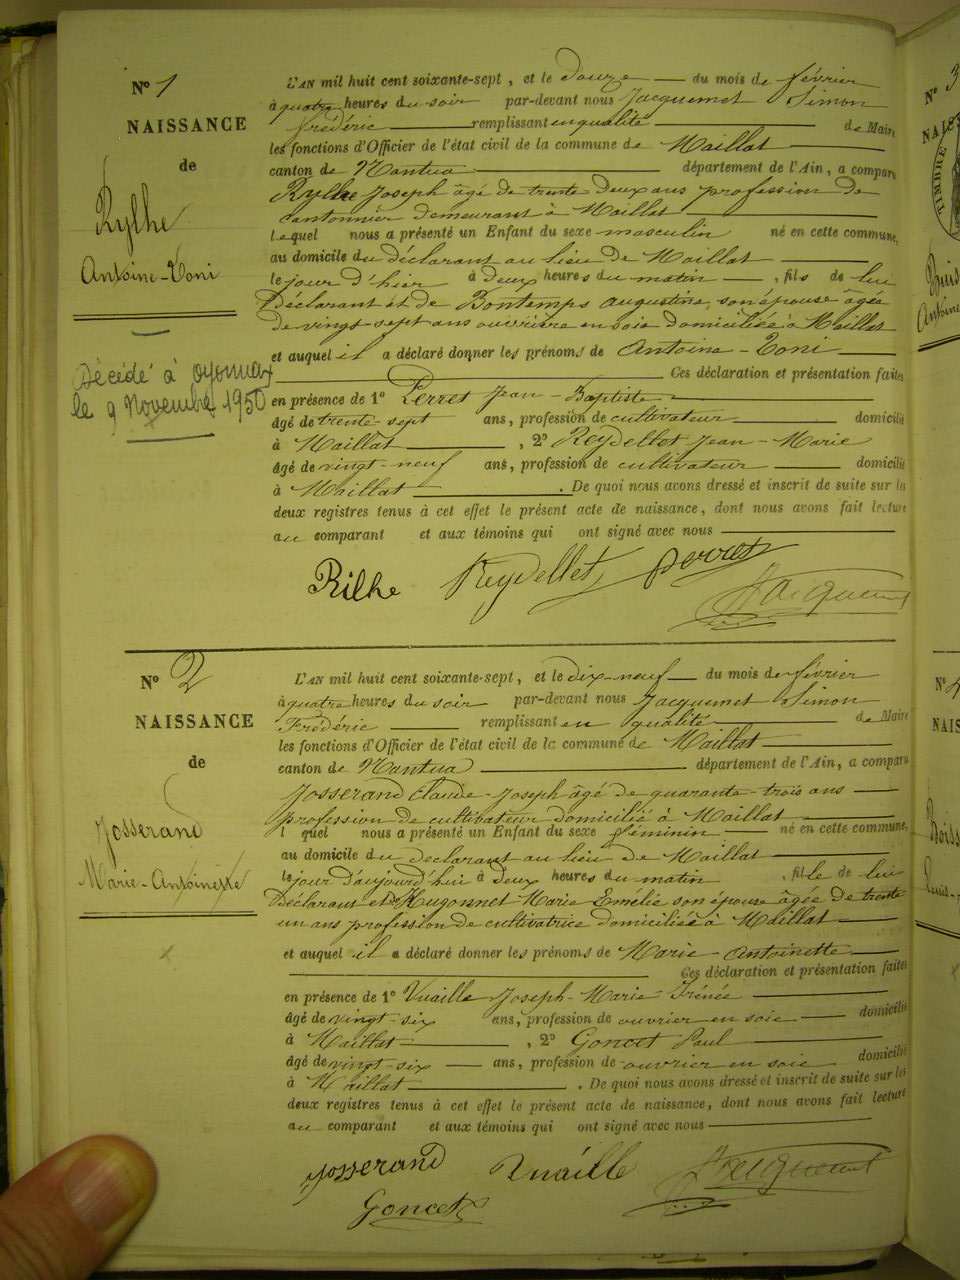 N° 1
NAISSANCE
de
Rylhe
Antoine-Toni
Décédé à Oyonnax
le 9 Novembre 1950
L'AN mil huit cent soixante-sept, et le douze du mois de février
à quatre heures du soir par-devant nous Jacquemet Simon
frédéric remplissant en qualité de Maire
les fonctions d'Officier de l'état civil de la commune de Maillat
canton de Nantua département de l'Ain, a comparu
Rylhe Joseph âgé de trente deux ans profession de
cantonnier demeurant à Maillat
lequel nous a présenté un Enfant du sexe masculin né en cette commune,
au domicile du déclarant au lieu de Maillat
le jour d'hier à deux heures du matin, fils de lui
Déclarant et de Bontemps augustine, son épouse âgée
de vingt-sept ans ouvrière en soie domiciliée à Maillat
et auquel il a déclaré donner les prénoms de Antoine-Toni
Ces déclaration et présentation faites
en présence de 1° Perret Jean-Baptiste
âgé de trente-sept ans, profession de cultivateur domicilié
à Maillat, 2° Reydellet Jean-Marie
âgé de vingt-neuf ans, profession de cultivateur domicilié
à Maillat. De quoi nous avons dressé et inscrit de suite sur la
deux registres tenus à cet effet le présent acte de naissance, dont nous avons fait lecture
au comparant et aux témoins qui ont signé avec nous
Rilhe Reydellet perret
Jacquemet
N° 2
NAISSANCE
de
Josserand
Marie-Antoinette
L'AN mil huit cent soixante-sept, et le dix-neuf du mois de février
à quatre heures du soir par-devant nous Jacquemet Simon
Frédéric remplissant en qualité de Maire
les fonctions d'Officier de l'état civil de la commune de Maillat
canton de Nantua département de l'Ain, a comparu
Josserand Claude-Joseph âgé de quarante-trois ans
profession de cultivateur domicilié à Maillat
l quel nous a présenté un Enfant du sexe féminin né en cette commune,
au domicile du déclarant au lieu de Maillat
le jour d'aujourd'hui à deux heures du matin, fille de lui
Déclarant et de Hugonnet Marie Emélie son épouse âgée de trente
un ans profession de cultivatrice domiciliée à Maillat
et auquel il a déclaré donner les prénoms de Marie-Antoinette
Ces déclaration et présentation faites
en présence de 1° Vuaille Joseph-Marie-Irénée
âgé de vingt-six ans, profession de ouvrier en soie domicilié
à Maillat, 2° Goncet Paul
âgé de vingt-six ans, profession de ouvrier en soie domicilié
à Maillat. De quoi nous avons dressé et inscrit de suite sur les
deux registres tenus à cet effet le présent acte de naissance, dont nous avons fait lecture
au comparant et aux témoins qui ont signé avec nous
Josserand Vuaille Jacquemet
Goncet
N° 3
NAIS
TIMBRE
Antoine
N° 4
NAIS